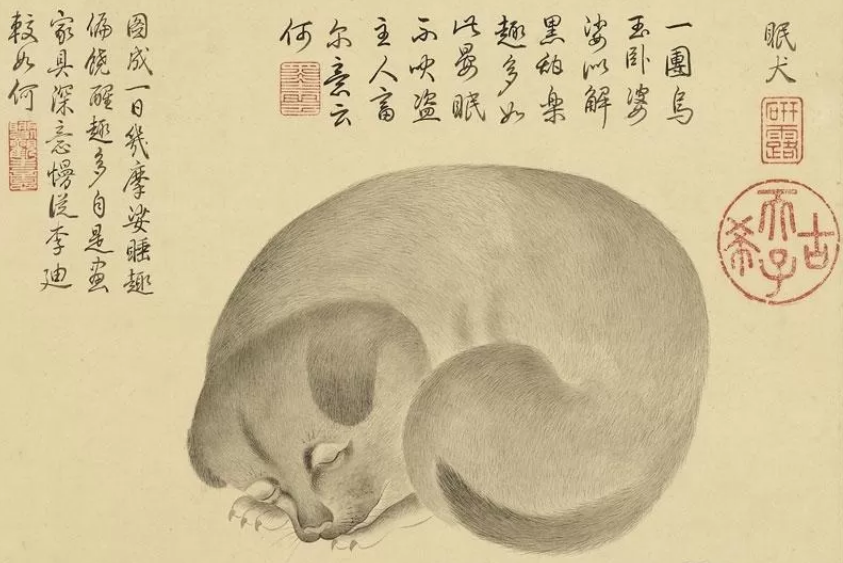 眠犬
研露
古希天子
一團烏
玉卧婆
娑似解
黑甜樂
趣多如
此晏眠
不吠盗
主人畜
尔意云
何
圖成一日幾摩娑睡趣
偏饒醒趣多自是畫
家具深意慢從李廸
較如何